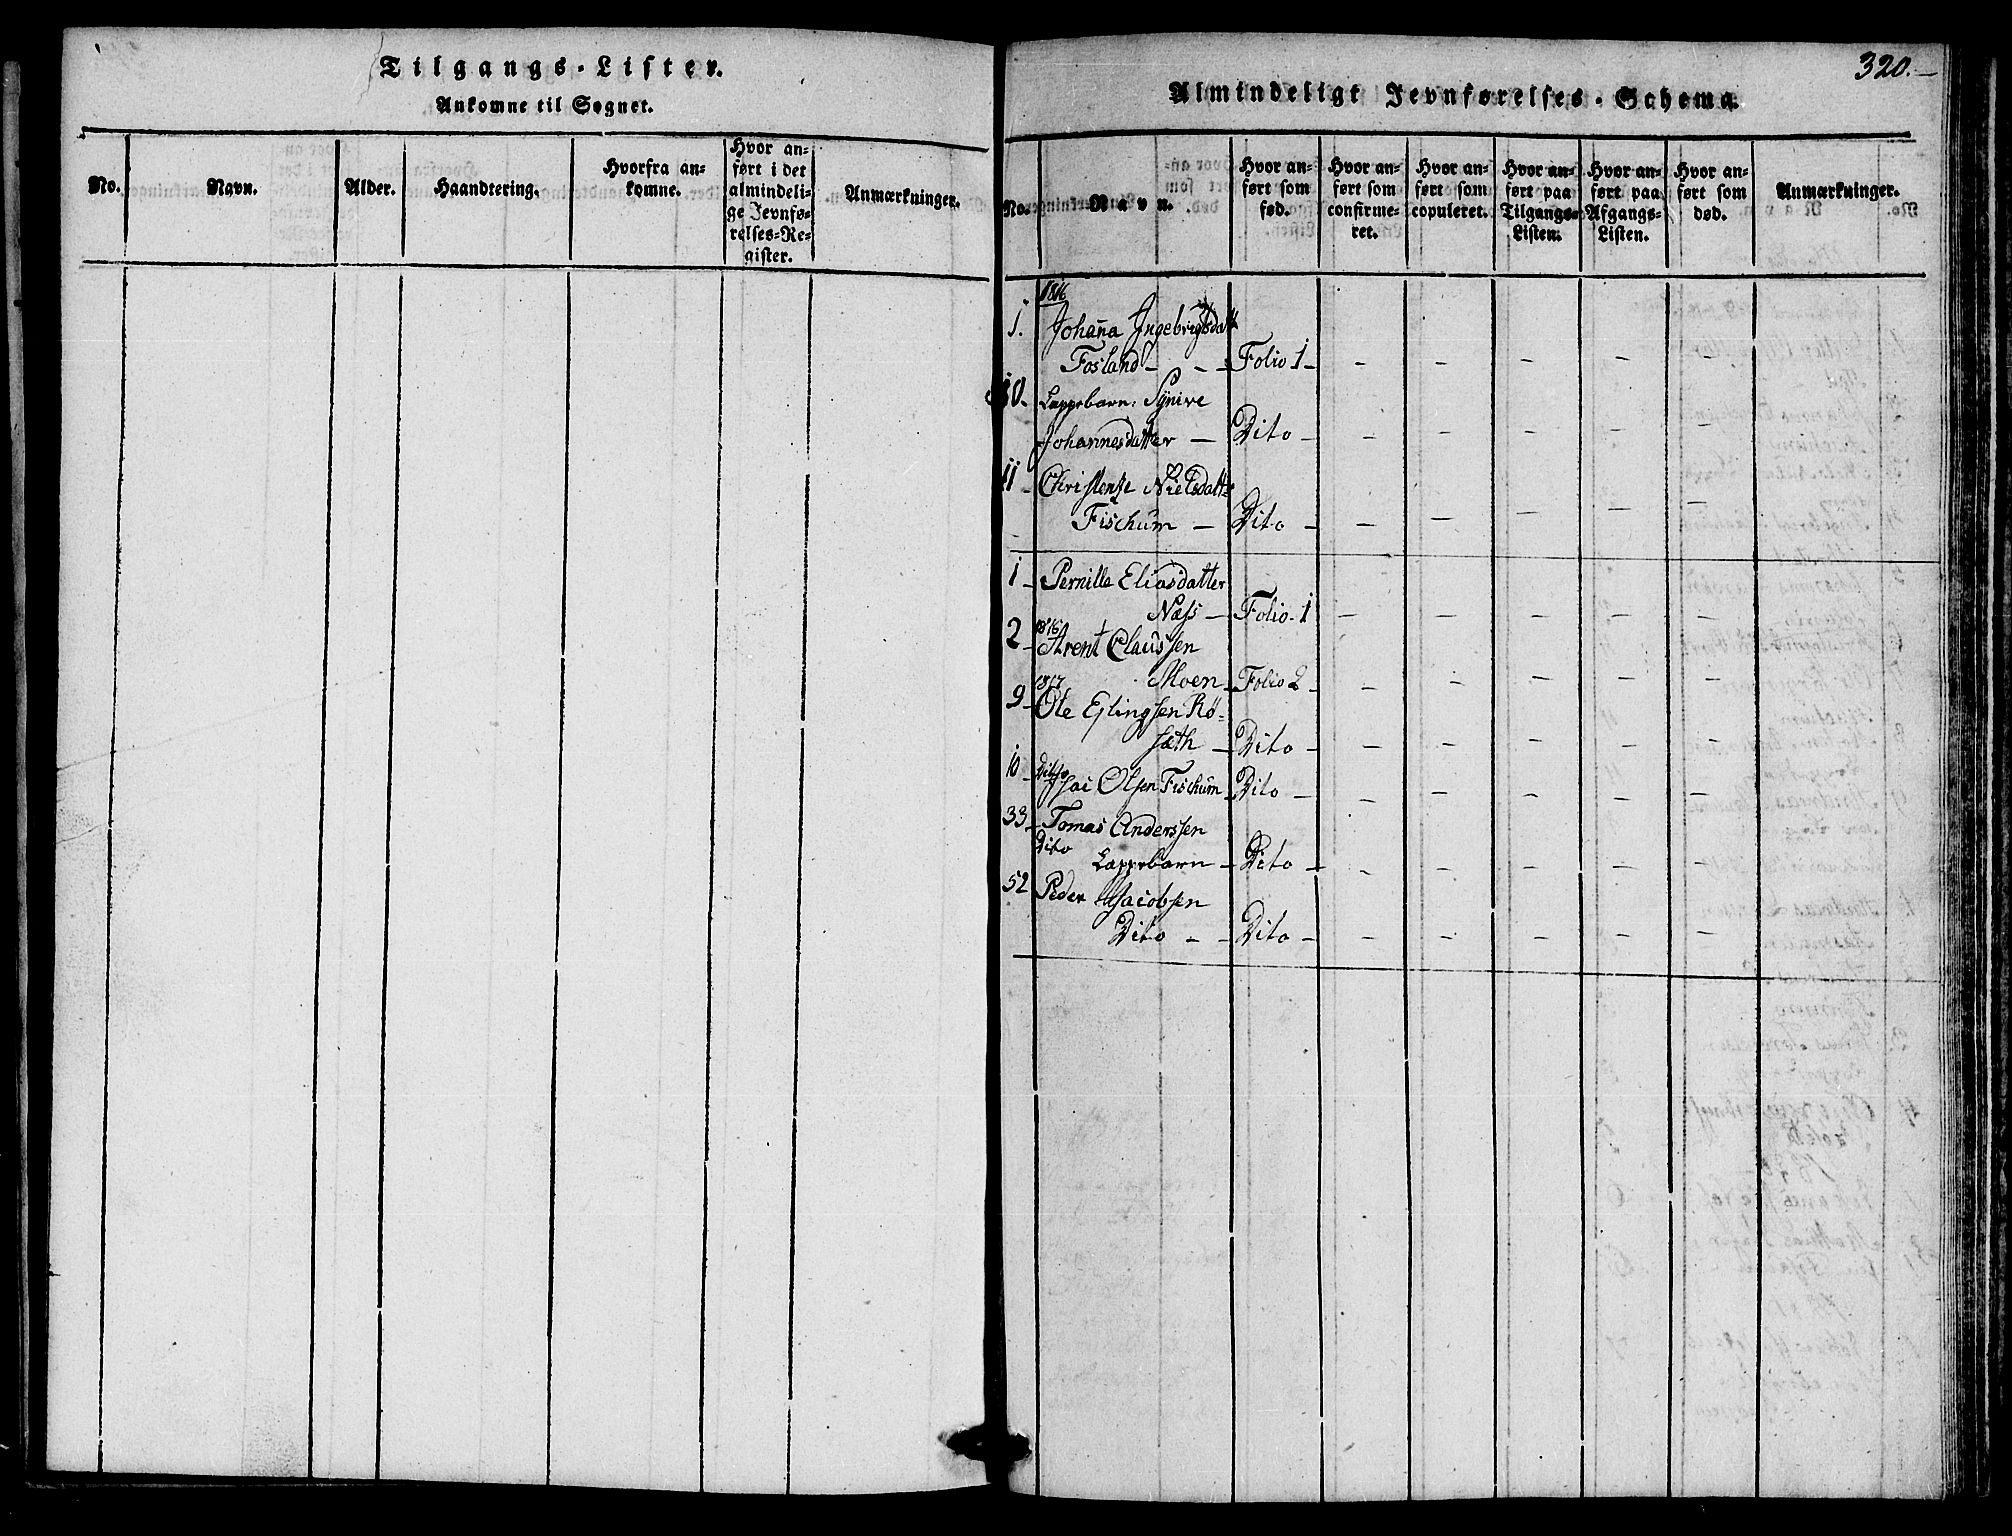 Tilgangs-Lister.
Ankomne til Sognet.
No.
Navn.
Alder.
Haandtering.
Hvorfra an-
komne.
Hvor an-
ført i det
almindeli-
ge Jevnfø-
relses-Re-
gister.
Anmærkninger.
320.-
Almindeligt Jevnførelses-Schema.
No.
Navn.
Hvor an-
ført som
fød.
Hvor an-
ført som
confirme-
ret.
Hvor an-
ført som
copuleret.
Hvor an-
ført paa
Tilgangs-
Listen.
Hvor an-
ført paa
Afgangs-
Listen.
Hvor an-
ført som
død.
Anmærkninger.
1816
1. Johana Ingebrigtsdatt
Fosland - - - Folio 1 - - - - - - -
10 - Lappebarn: Synive
Johannesdatter - Dito - - - - - -
11 - Christentze Nielsdatt
Fischum - Dito - - - - - -
1 - Pernille Eliasdatter
Næss - Folio - 1 - - - - -
2 - 1816 Arent Claussen
Moen - Folio 2 - - - - - -
1817
9 - Ole Eslingsen Rø-
sæth - Dito - - - - - -
10 - Dito Isai Olsen Fischum Dito - - - - - -
33 - Tomas Anderssen
Dito
Lappebarn - Dito - - - - - -
52 Peder Isacobsen
Dito - - Dito - - - - - -